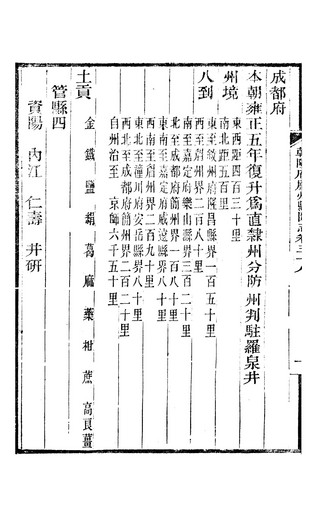 成都府
本朝雍正五年復升爲直隸州分防州判駐羅泉井
州境
東西距四百三十里
南北距五百二十里
八到
東至敘州府隆昌縣界一百五十里
南至嘉定府樂山縣界三百二十里
西至眉州界二百八十里
北至成都府簡州界一百八十里
東南至嘉定府威遠縣界八十里
西南至眉州界二百九十里
東北至潼川府安岳縣界八十里
西北至成都府簡州界百二十里
自州治至京師六千五百二十里
土貢
金 鐵 鹽 絹 葛 麻 藥 柑 蔗 高良薑
管縣四
資陽 內江 仁壽 井研